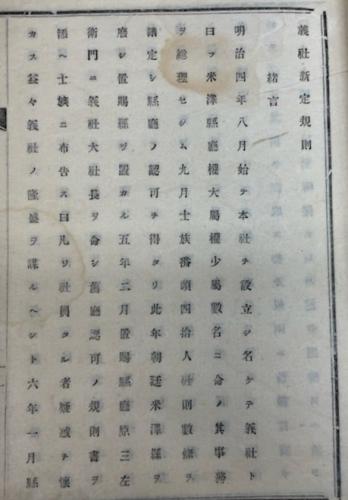 義社新定規則
緒言
明治四年八月始テ本社ヲ設立シ名ケテ義社ト
曰フ米澤縣廳權大屬權少屬數名ニ命シ其事務
ヲ總理セシム九月士族番頭四拾人社則數條ヲ
議定シ縣廳ノ認可ヲ得タリ此年朝廷米澤縣ヲ
廢シ置賜縣ヲ置カル五年二月置賜縣廳原三左
衛門ニ義社大社長ヲ命シ舊廳認可ノ規則書ヲ
添ヘ士族ニ布告ス曰凡ソ社員タル者疑惑ヲ懐
カス益々義社ノ隆盛ヲ謀ルヘシト六年一月縣